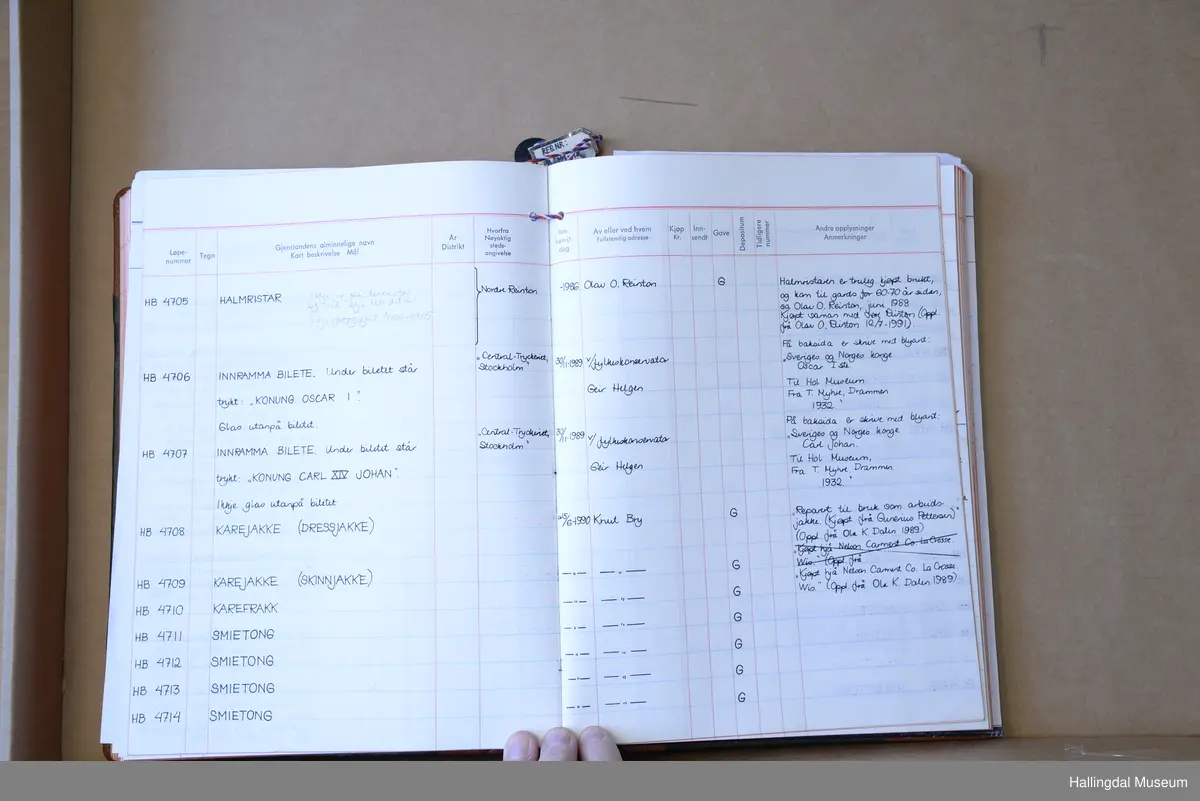 REG.NR:
Løpe-
nummer
Tegn
Gjenstandens alminnelige navn
Kort beskrivelse Mål
År
Distrikt
Hvorfra
Nøyaktig
steds-
angivelse
Inn-
komst-
dag
Av eller ved hvem
Fullstendig adresse
Kjøp
Kr.
Inn-
sendt
Gave
Depositum
Tidligere
nummer
Andre opplysninger
Anmerkninger
HB 4705 HALMRISTAR Nordre Reinton -1986 Olav O. Reinton G
Halmristaren er truleg kjøpt brukt,
og kom til gards for 60-70 år sidan,
sa Olav O. Reinton, juni 1988
Kjøpt saman med Reinton (Oppl.
frå Olav O. Reinton 12/7-1991).
HB 4706 INNRAMMA BILETE. Under biletet står
trykt: "KONUNG OSCAR I".
Glas utanpå bildet.
"Central-Tryckeriet,
Stockholm"
30/11-1989 v/fylkeskonservator
Geir Helgen
På baksida er skrive med blyant:
"Sveriges og Norges konge
Oscar I ste.
Til Hol Museum
Fra T. Myhre, Drammen
1932."
HB 4707 INNRAMMA BILETE. Under bildet står
trykt: "KONUNG CARL XIV JOHAN".
Ikkje glas utanpå biletet
"Central-Tryckeriet,
Stockholm"
30/11-1989 v/fylkeskonservator
Geir Helgen
På baksida er skrive med blyant:
"Sveriges og Norges konge
Carl Johan.
Til Hol Museum,
Fra T. Myhre, Drammen
1932."
HB 4708 KAREJAKKE (DRESSJAKKE) 6-1990 Knut Bry G
"Reparert til bruk som arbeids-
jakke. (Kjøpt frå Gunerius Pettersen)"
(Oppl. frå Ola K. Dalen 1989)
"Kjøpt hjå Nelson Garment Co. La Crosse.
Wis." (Oppl. frå
HB 4709 KAREJAKKE (SKINNJAKKE) —"— —"— G
"Kjøpt hjå Nelson Garment Co. La Crosse
Wis." (Oppl. frå Ola K. Dalen 1989)
HB 4710 KAREFRAKK —"— —"— G
HB 4711 SMIETONG —"— —"— G
HB 4712 SMIETONG —"— —"— G
HB 4713 SMIETONG —"— —"— G
HB 4714 SMIETONG —"— —"— G
Hallingdal Museum